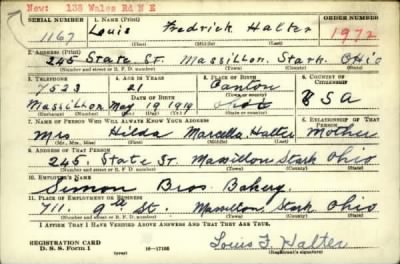 New: 138 Wales Rd N E
SERIAL NUMBER 1. NAME (Print) ORDER NUMBER
1167 Louis Fredrick Halter 1972
(First) (Middle) (Last)
2. ADDRESS (Print)
245 State St. Massillon, Stark, Ohio
(Number and street or R. F. D. number) (Town) (County) (State)
3. TELEPHONE 4. AGE IN YEARS 5. PLACE OF BIRTH 6. COUNTRY OF CITIZENSHIP
7523 21 Canton
DATE OF BIRTH (Town or county)
Massillon May 19 1919 Ohio U S A
(Exchange) (Number) (Mo.) (Day) (Yr.) (State or country)
7. NAME OF PERSON WHO WILL ALWAYS KNOW YOUR ADDRESS 8. RELATIONSHIP OF THAT PERSON
Mrs Hilda Marcella Halter Mother
(Mr., Mrs., Miss) (First) (Middle) (Last)
9. ADDRESS OF THAT PERSON
245. State St. Massillon Stark Ohio
(Number and street or R. F. D. number) (Town) (County) (State)
10. EMPLOYER'S NAME
Simon Bros Bakery.
11. PLACE OF EMPLOYMENT OR BUSINESS
711. 9th St. Massillon Stark Ohio
(Number and street or R. F. D. number) (Town) (County) (State)
I AFFIRM THAT I HAVE VERIFIED ABOVE ANSWERS AND THAT THEY ARE TRUE.
REGISTRATION CARD
D. S. S. Form 1 (over) 16-17105 Louis F. Halter
(Registrant's signature)